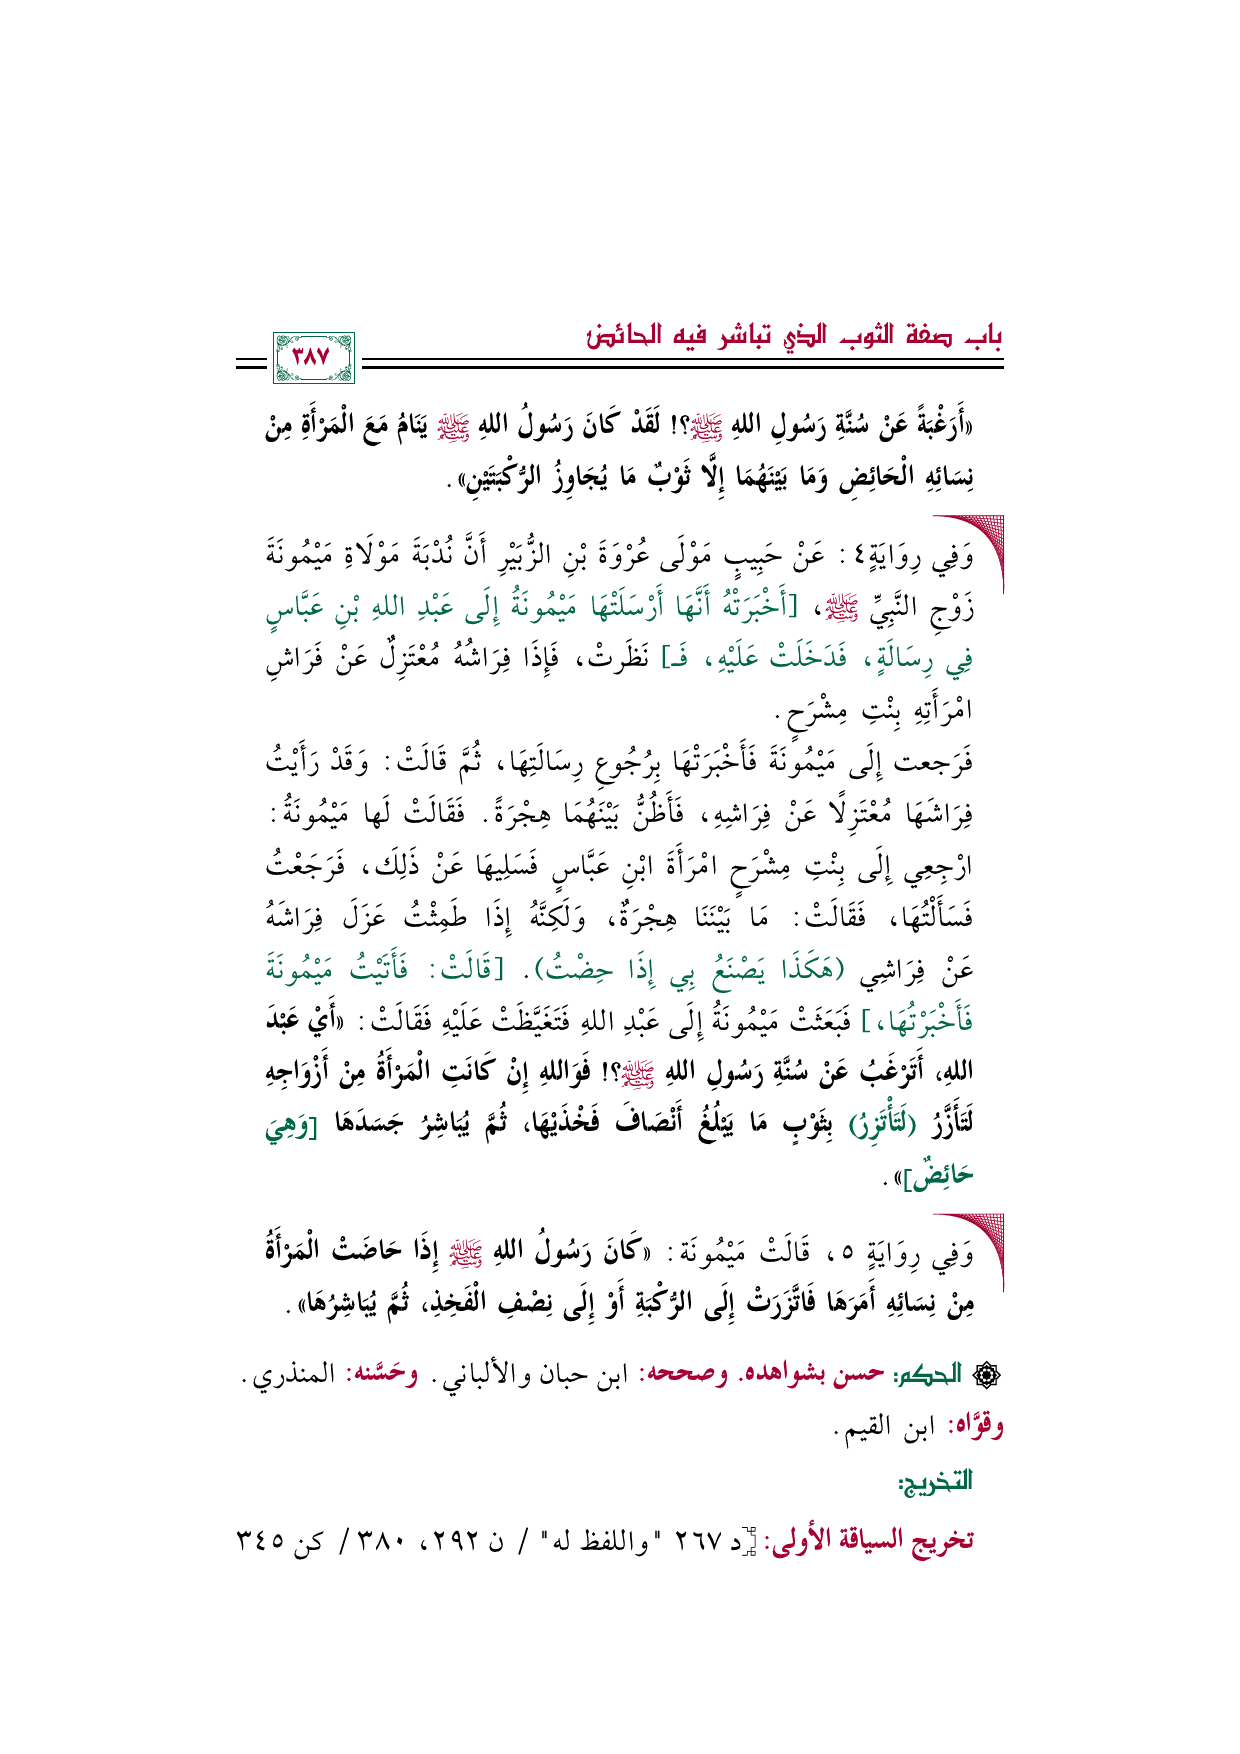 باب صفة الثوب الذي تباشر فيه الحائض
٣٨٧
«أَرَغْبَةً عَنْ سُنَّةِ رَسُولِ اللهِ ﷺ؟! لَقَدْ كَانَ رَسُولُ اللهِ ﷺ يَنَامُ مَعَ الْمَرْأَةِ مِنْ
نِسَائِهِ الْحَائِضِ وَمَا بَيْنَهُمَا إِلَّا ثَوْبٌ مَا يُجَاوِزُ الرُّكْبَتَيْنِ».
وَفِي رِوَايَةٍ٤: عَنْ حَبِيبٍ مَوْلَى عُرْوَةَ بْنِ الزُّبَيْرِ أَنَّ نُدْبَةَ مَوْلَاةِ مَيْمُونَةَ
زَوْجِ النَّبِيِّ ﷺ، [أَخْبَرَتْهُ أَنَّهَا أَرْسَلَتْهَا مَيْمُونَةُ إِلَى عَبْدِ اللهِ بْنِ عَبَّاسٍ
فِي رِسَالَةٍ، فَدَخَلَتْ عَلَيْهِ، فَـ] نَظَرتْ، فَإِذَا فِرَاشُهُ مُعْتَزِلٌ عَنْ فَرَاشِ
امْرَأَتِهِ بِنْتِ مِشْرَحٍ.
فَرَجعت إِلَى مَيْمُونَةَ فَأَخْبَرَتْهَا بِرُجُوعِ رِسَالَتِهَا، ثُمَّ قَالَتْ: وَقَدْ رَأَيْتُ
فِرَاشَهَا مُعْتَزِلًا عَنْ فِرَاشِهِ، فَأَظُنُّ بَيْنَهُمَا هِجْرَةً. فَقَالَتْ لَها مَيْمُونَةُ:
ارْجِعِي إِلَى بِنْتِ مِشْرَحٍ امْرَأَةَ ابْنِ عَبَّاسٍ فَسَلِيهَا عَنْ ذَلِكَ، فَرَجَعْتُ
فَسَأَلْتُهَا، فَقَالَتْ: مَا بَيْنَنَا هِجْرَةٌ، وَلَكِنَّهُ إِذَا طَمِثْتُ عَزَلَ فِرَاشَهُ
عَنْ فِرَاشِي (هَكَذَا يَصْنَعُ بِي إِذَا حِضْتُ). [قَالَتْ: فَأَتَيْتُ مَيْمُونَةَ
فَأَخْبَرْتُهَا،] فَبَعَثَتْ مَيْمُونَةُ إِلَى عَبْدِ اللهِ فَتَغَيَّظَتْ عَلَيْهِ فَقَالَتْ: «أَيْ عَبْدَ
اللهِ، أَتَرْغَبُ عَنْ سُنَّةِ رَسُولِ اللهِ ﷺ؟! فَوَاللهِ إِنْ كَانَتِ الْمَرْأَةُ مِنْ أَزْوَاجِهِ
لَتَأَزَّرُ (لَتَأْتَزِرُ) بِثَوْبٍ مَا يَبْلُغُ أَنْصَافَ فَخْذَيْهَا، ثُمَّ يُبَاشِرُ جَسَدَهَا [وَهِيَ
حَائِضٌ]».
وَفِي رِوَايَةٍ ٥، قَالَتْ مَيْمُونَة: «كَانَ رَسُولُ اللهِ ﷺ إِذَا حَاضَتْ الْمَرْأَةُ
مِنْ نِسَائِهِ أَمَرَهَا فَاتَّزَرَتْ إِلَى الرُّكْبَةِ أَوْ إِلَى نِصْفِ الْفَخِذِ، ثُمَّ يُبَاشِرُهَا».
الحكم: حسن بشواهده. وصححه: ابن حبان والألباني. وحَسَّنه: المنذري.
وقوَّاه: ابن القيم.
التخريج:
تخريج السياقة الأولى: [د ٢٦٧ "واللفظ له" / ن ٢٩٢، ٣٨٠ / كن ٣٤٥